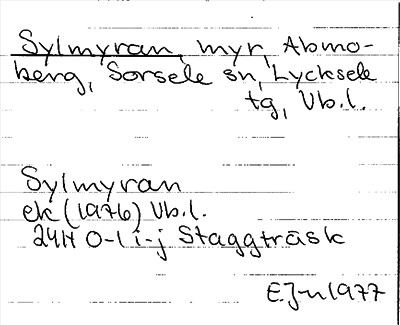 Sylmyran, myr, Abmo-
berg, Sorsele sn, Lycksele
tg, Vb.l.
Sylmyran
ek (1976) Vb.l.
24H 0-1 i-j Staggträsk
EJ-n 1977